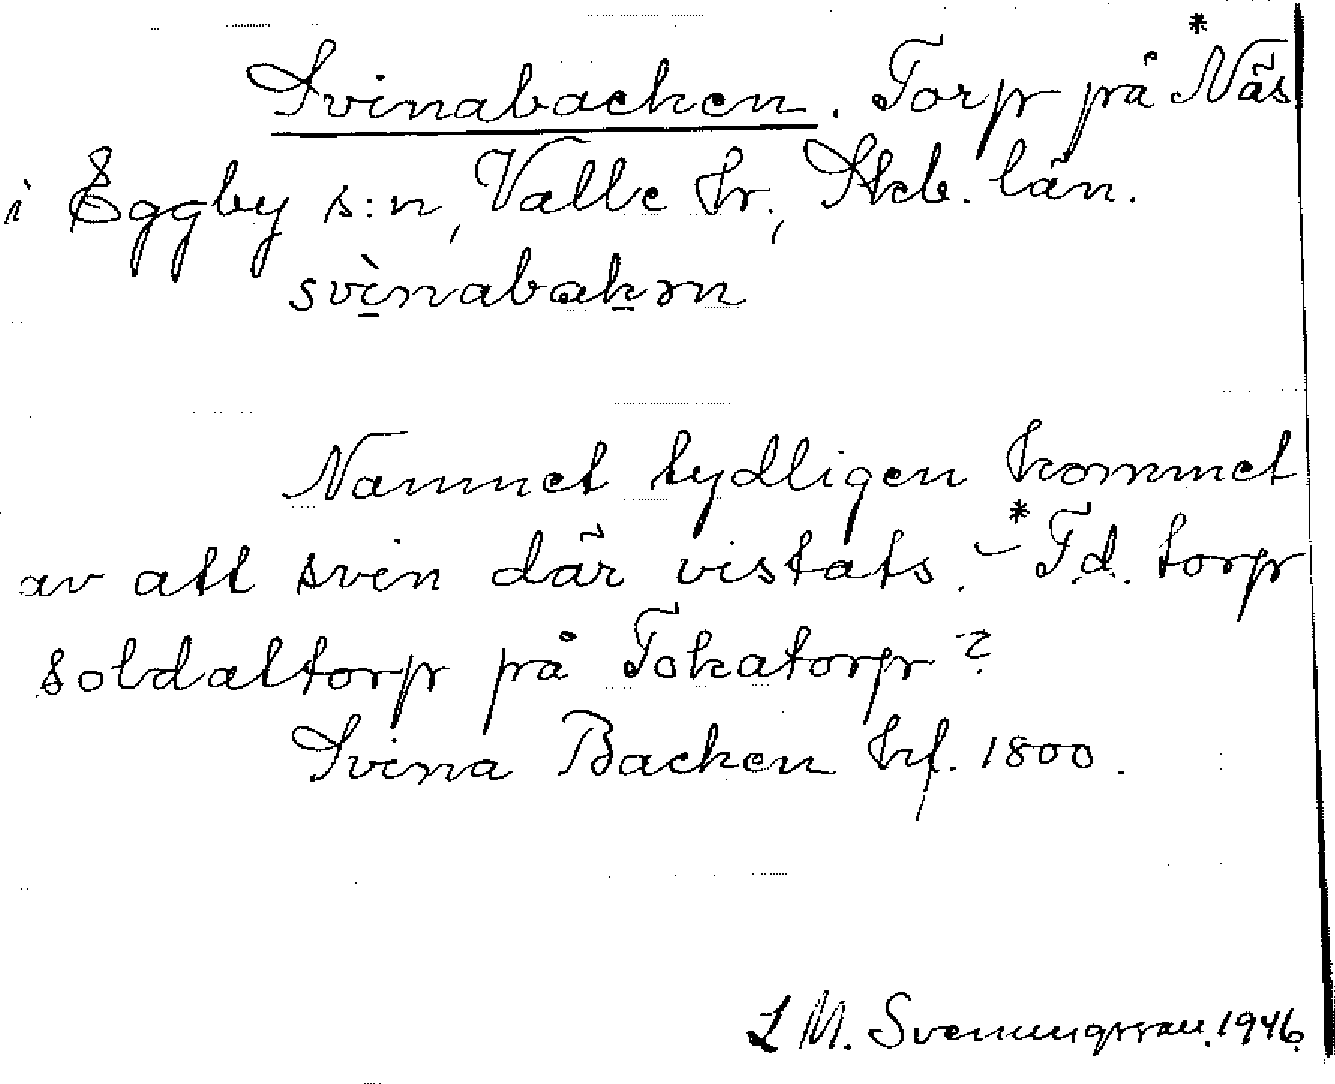 Svinabacken. Torp på *Näs
i Eggby s:n, Valle hr., Skb. län.
svìnabakən
Namnet tydligen kommet
av att svin där vistats. – *F.d. torp
soldattorp på Tokatorp?
Svina Backen hf. 1800.
L M. Svenungsson. 1946.